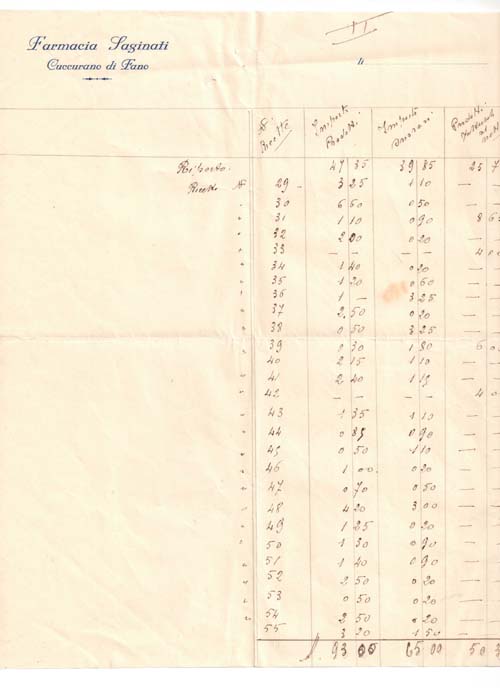 Farmacia Saginati
Cuccurano di Fano
II
lì
N. Ricette Importo Prodotti Importo Onorari Prodotti
Riporto 47 35 39 85 25 7
Ricette N. 29 3 25 1 10 —
" 30 6 60 0 50 —
" 31 1 10 0 90 8 60
" 32 2 20 0 20 —
" 33 — — — — 4 00
" 34 1 40 0 20 —
" 35 1 20 0 60 —
" 36 1 — 3 25 —
" 37 2,50 0 20 —
" 38 0 50 3 25 —
" 39 0 30 1 80 6 0
" 40 2 15 1 10 —
" 41 2 40 1 15 —
" 42 — — — — 4 0
" 43 1 35 1 10 —
" 44 0 85 0 90 —
" 45 0 50 1 10 —
" 46 1 00 0 20 —
" 47 0 70 0 50 —
" 48 4 20 3 00 —
" 49 1 25 0 20 —
" 50 1 30 0 90 —
" 51 1 40 0 90 —
" 52 2 50 0 20 —
" 53 0 50 0 20 —
" 54 2 50 0 20 —
" 55 3 20 1 50 —
£. 93 05 65 00 50 3